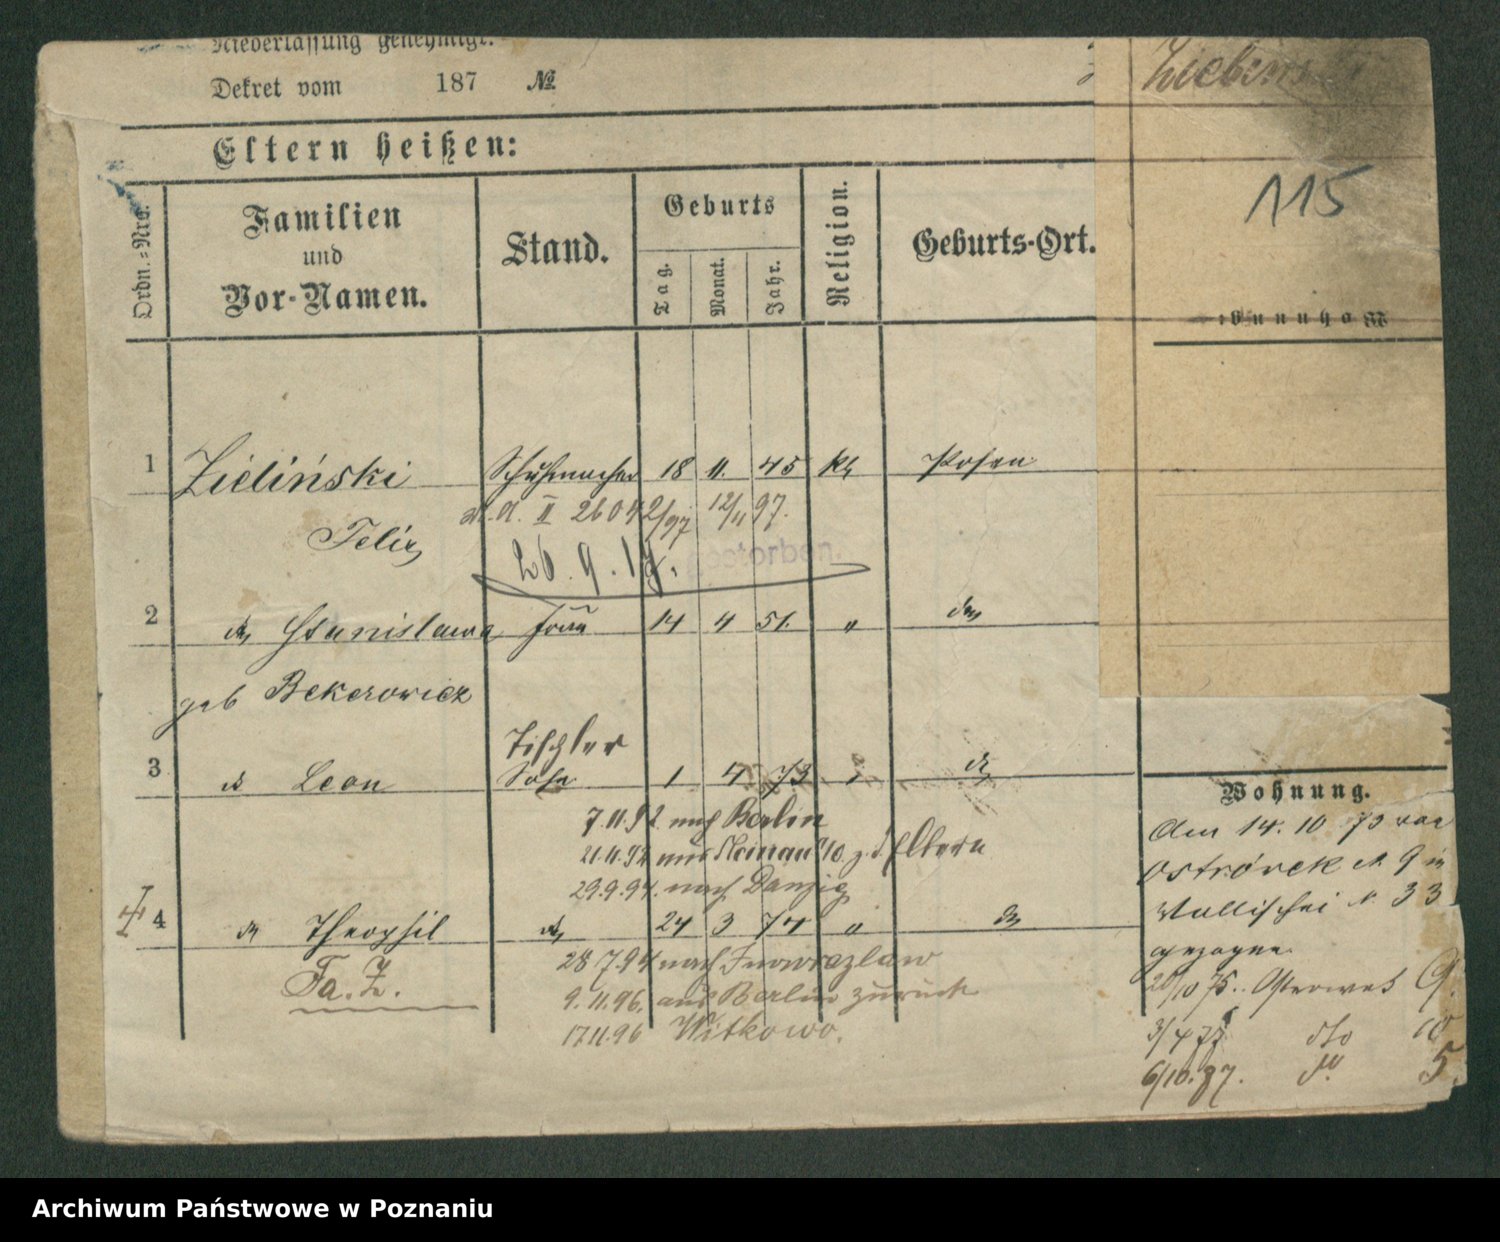 Niederlassung genehmigt.
Dekret vom 187 №
Eltern heißen:
Ordn.=Nro.
Familien
und
Vor=Namen.
Stand.
Geburts
Tag.
Monat.
Jahr.
Religion.
Geburts=Ort.
115
Wohnung.
1 Zieliński Schuhmacher 18 11. 45 kh Posen
A. d. II 26042/97 12/11 97.
Felix
26.9.17. gestorben.
2 do Stanislawa Frau 14 4 51. " do
geb Bekerowicz
Tischler
3 do Leon Sohn 1 4 73 " do
7.11.92 nach Berlin
21.11.92 aus z. d. Eltern
29.9.94. nach Danzig
4 do Theophil do 24 3 74 " do
Fa. Z.
28 7.94 nach Inowrazlaw
9.11.96. aus Berlin zurück
17.11.96 Witkowo.
Wohnung.
Am 14. 10 73 von
Ostrówek N 9 in
Wallischei N 33
gezogen
20/10 75. Ostrowek 9.
3/4 77 dto 10
6/10.87. do. 5.